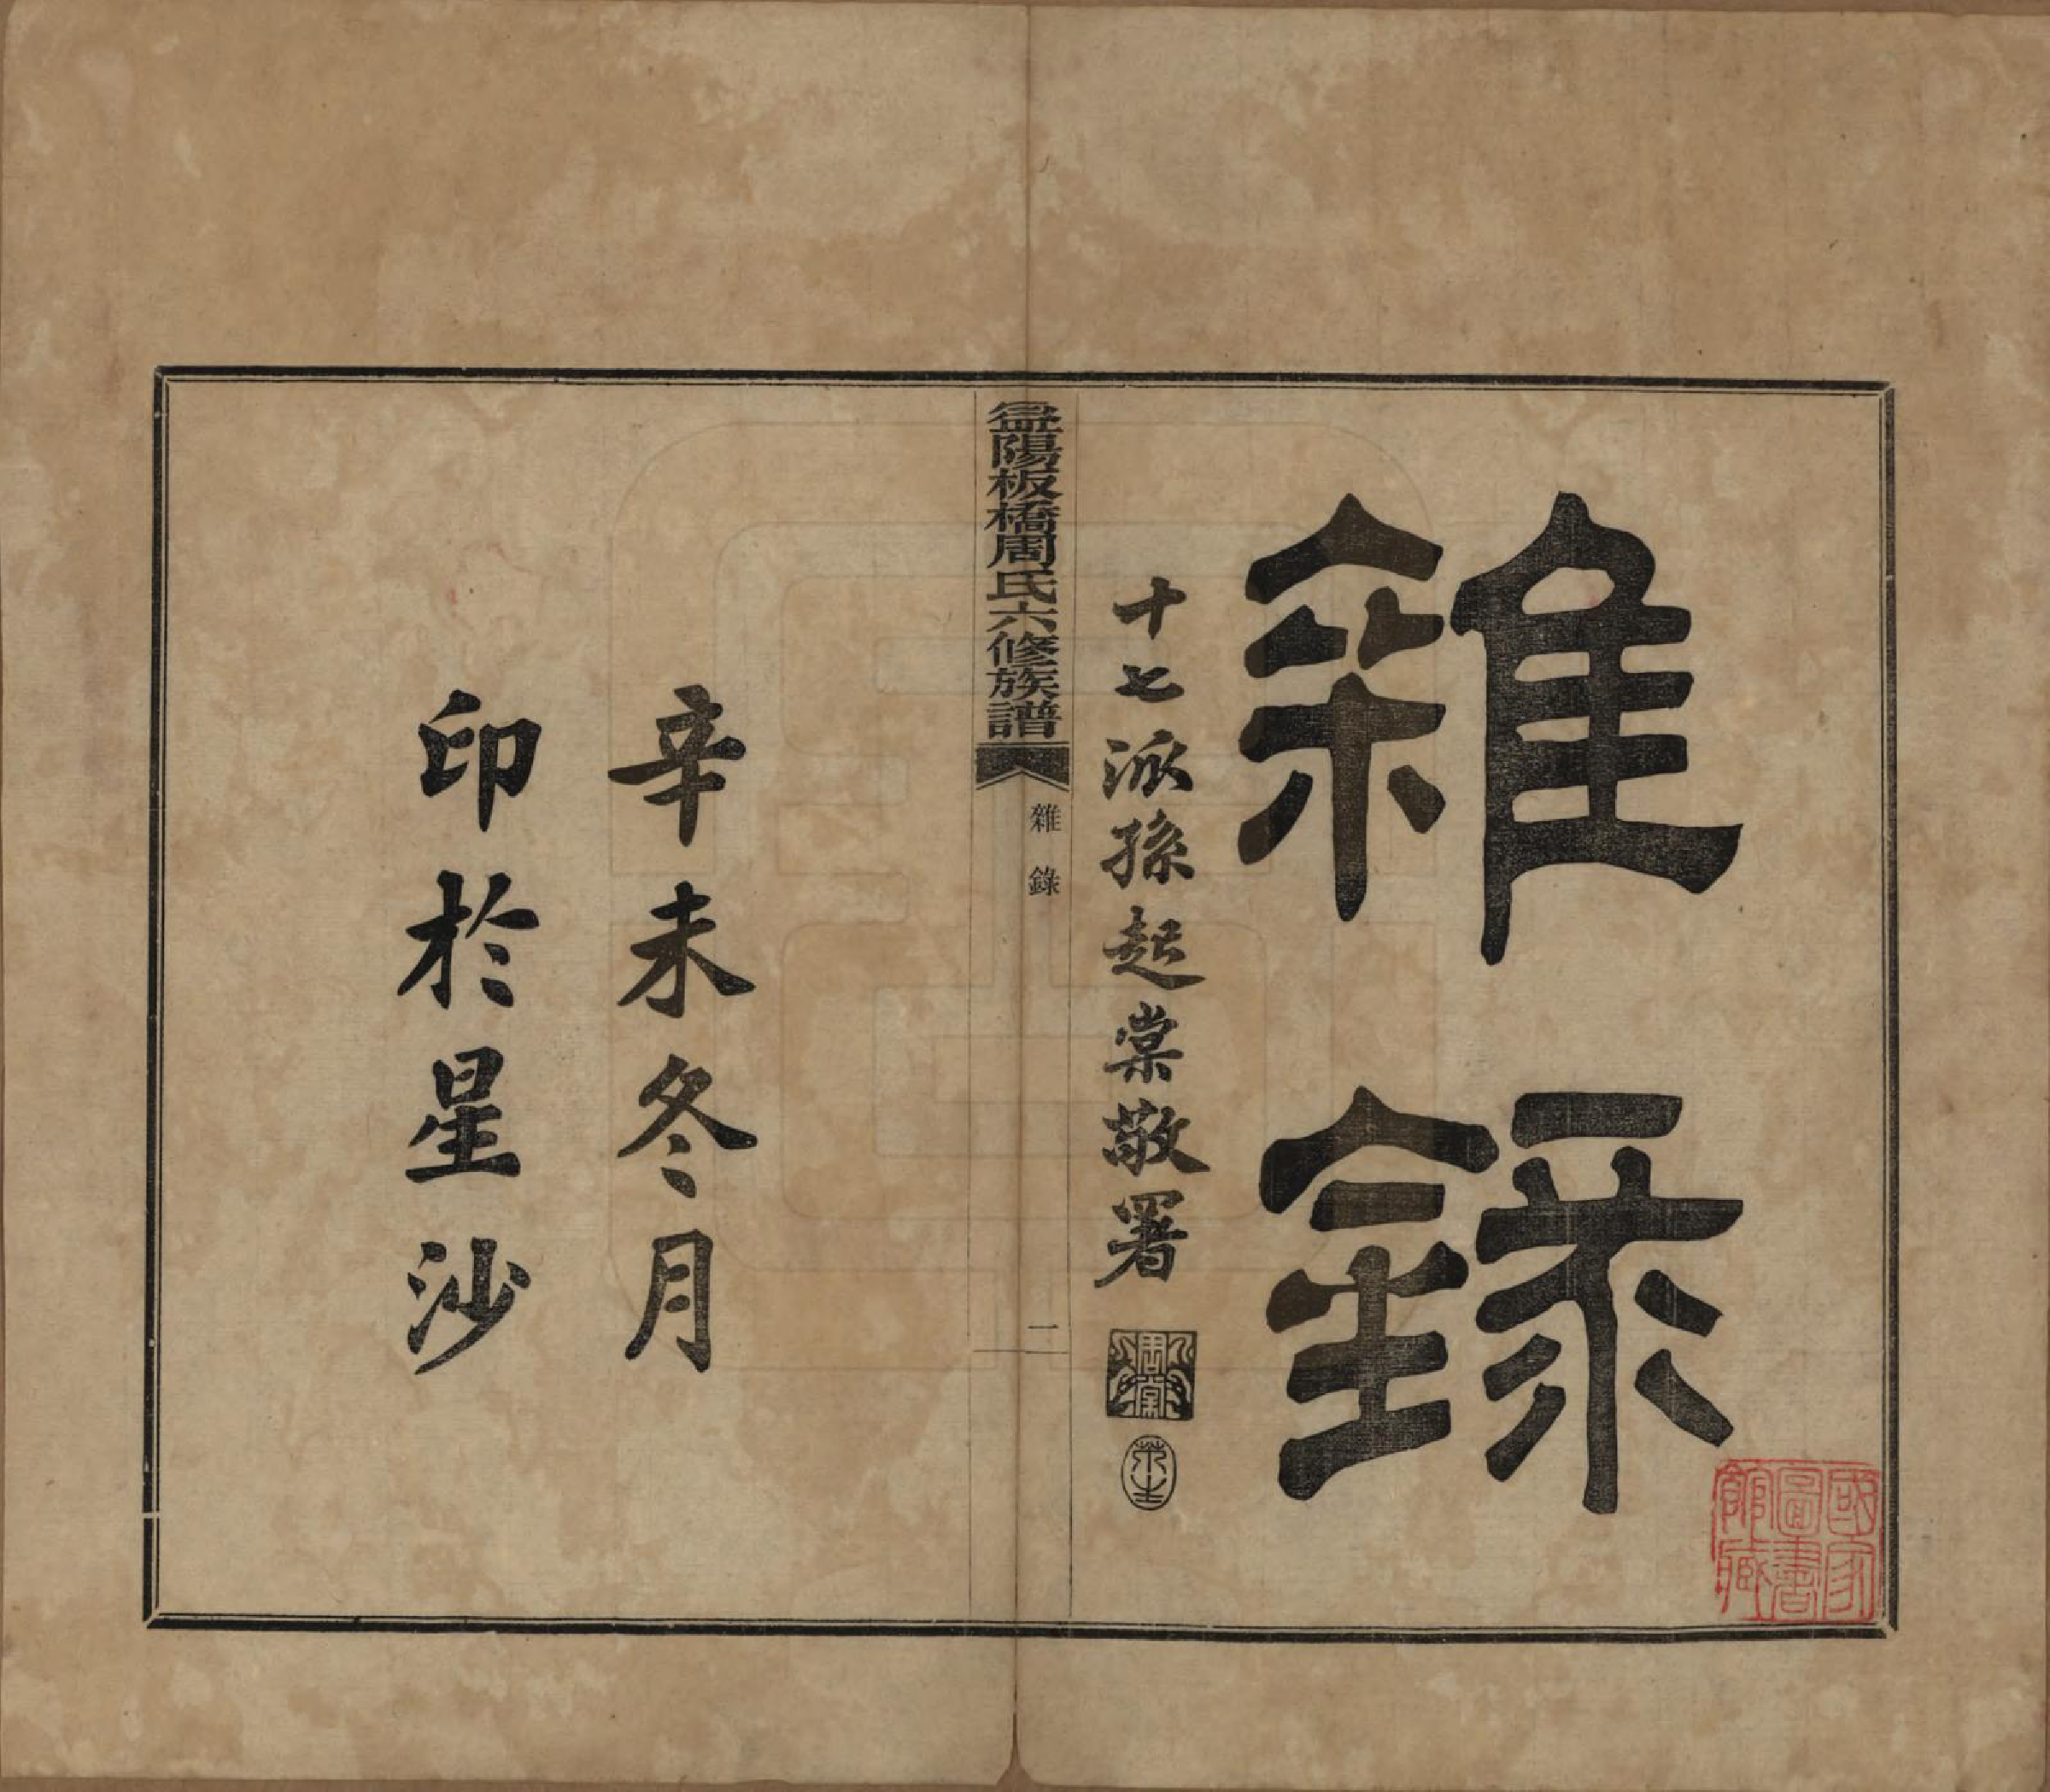 雜錄
十七派孫起棠敬署
益陽板橋周氏六修族譜
雜錄
一
辛未冬月
印於星沙
國家圖書館藏